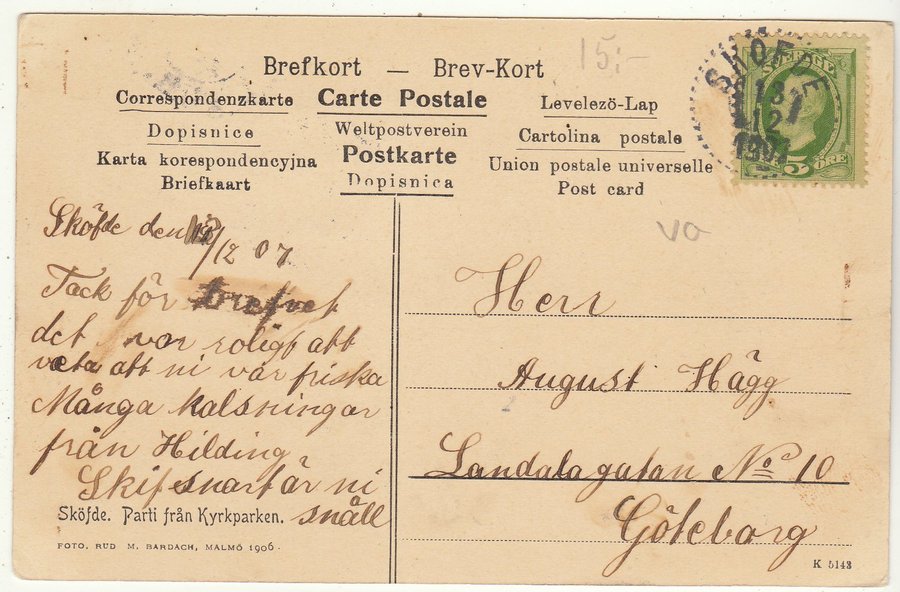 15:-
Brefkort — Brev-Kort
Correspondenzkarte Carte Postale Levelezö-Lap
Dopisnice Weltpostverein Cartolina postale
Karta korespondencyjna Postkarte Union postale universelle
Briefkaart Dopisnica Post card
SKÖFDE
13
12
1907
SVERIGE
5 ÖRE
va
Sköfde den
/12 07
Tack för brefvet
det var roligt att
veta att ni var friska
Många halsningar
från Hilding
Skif snart är ni
snäll
Herr
August Hägg
Landalagatan No 10
Göteborg
Sköfde. Parti från Kyrkparken.
FOTO. RUD M. BARDACH, MALMÖ 1906.
K 5143